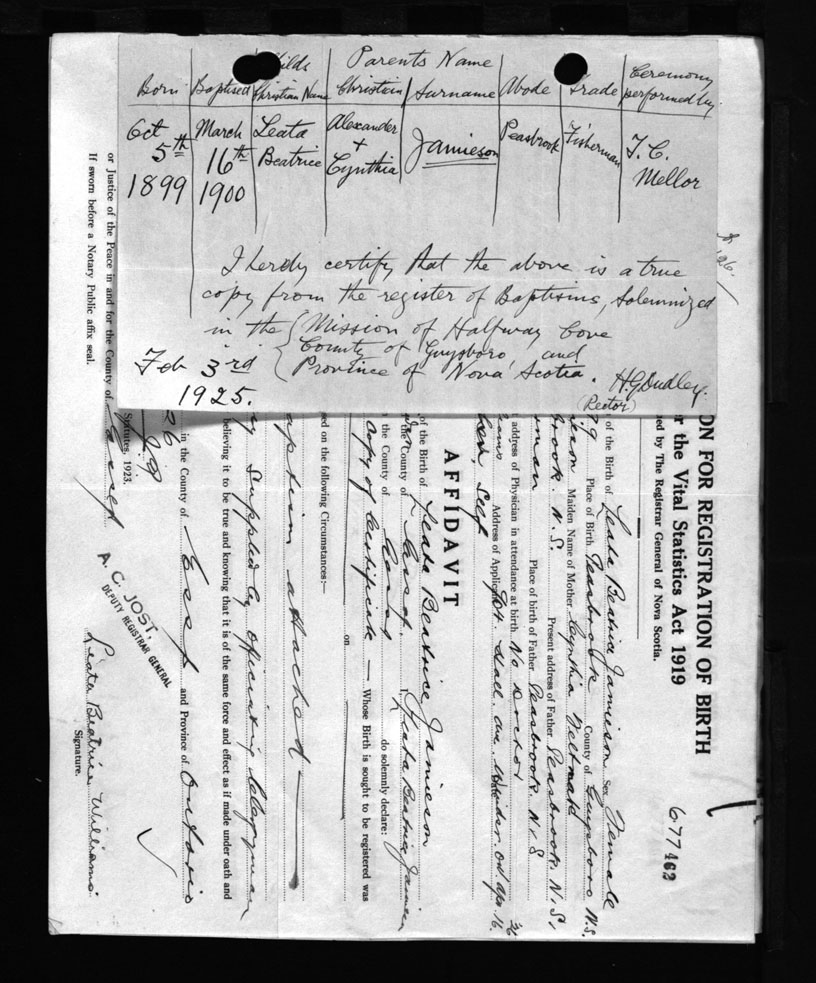 Born Baptised Childs Christian Name Parents Name Christian Surname Abode Trade Ceremony performed by
Oct 5th 1899 March 16th 1900 Leata Beatrice Alexander + Cynthia Jamieson Peasbrook Fisherman T. C. Mellor
I herdy certify that the above is a true
copy from the register of Baptisms, Solemnized
in the Mission of Halfway Cove
County of Guysboro, and
Province of Nova Scotia.
Feb 3rd
1925.
H.G. Dudley.
(Rector)
ON FOR REGISTRATION OF BIRTH
r the Vital Statistics Act 1919
ned by The Registrar General of Nova Scotia.
677462
of the Birth of Leata Beatrice Jamieson Sex Female
Place of Birth Peasbrook County of Guysboro N.S.
Maiden Name of Mother Cynthia
brook. N. S. Present address of Father Peasbrook. N. S.
rman Place of birth of Father Peasbrook. N. S
address of Physician in attendance at birth No Doctor
Address of Applicant
Self
AFFIDAVIT
of the Birth of Leata Beatrice Jamieson
the County of Essex I, Leata Beatrice Jamieson
in the County of Essex do solemnly declare:
Copy of Certificate — Whose Birth is sought to be registered was
on
sed on the following Circumstances:—
aptism attached
Supplied by Officiating Clergyman
believing it to be true and knowing that it is of the same force and effect as if made under oath and
Statutes, 1923.
in the County of Essex and Province of Ontario
A. C. JOST,
DEPUTY REGISTRAR GENERAL
Leata Beatrice Williams
Signature.
or Justice of the Peace in and for the County of Essex
If sworn before a Notary Public affix seal.